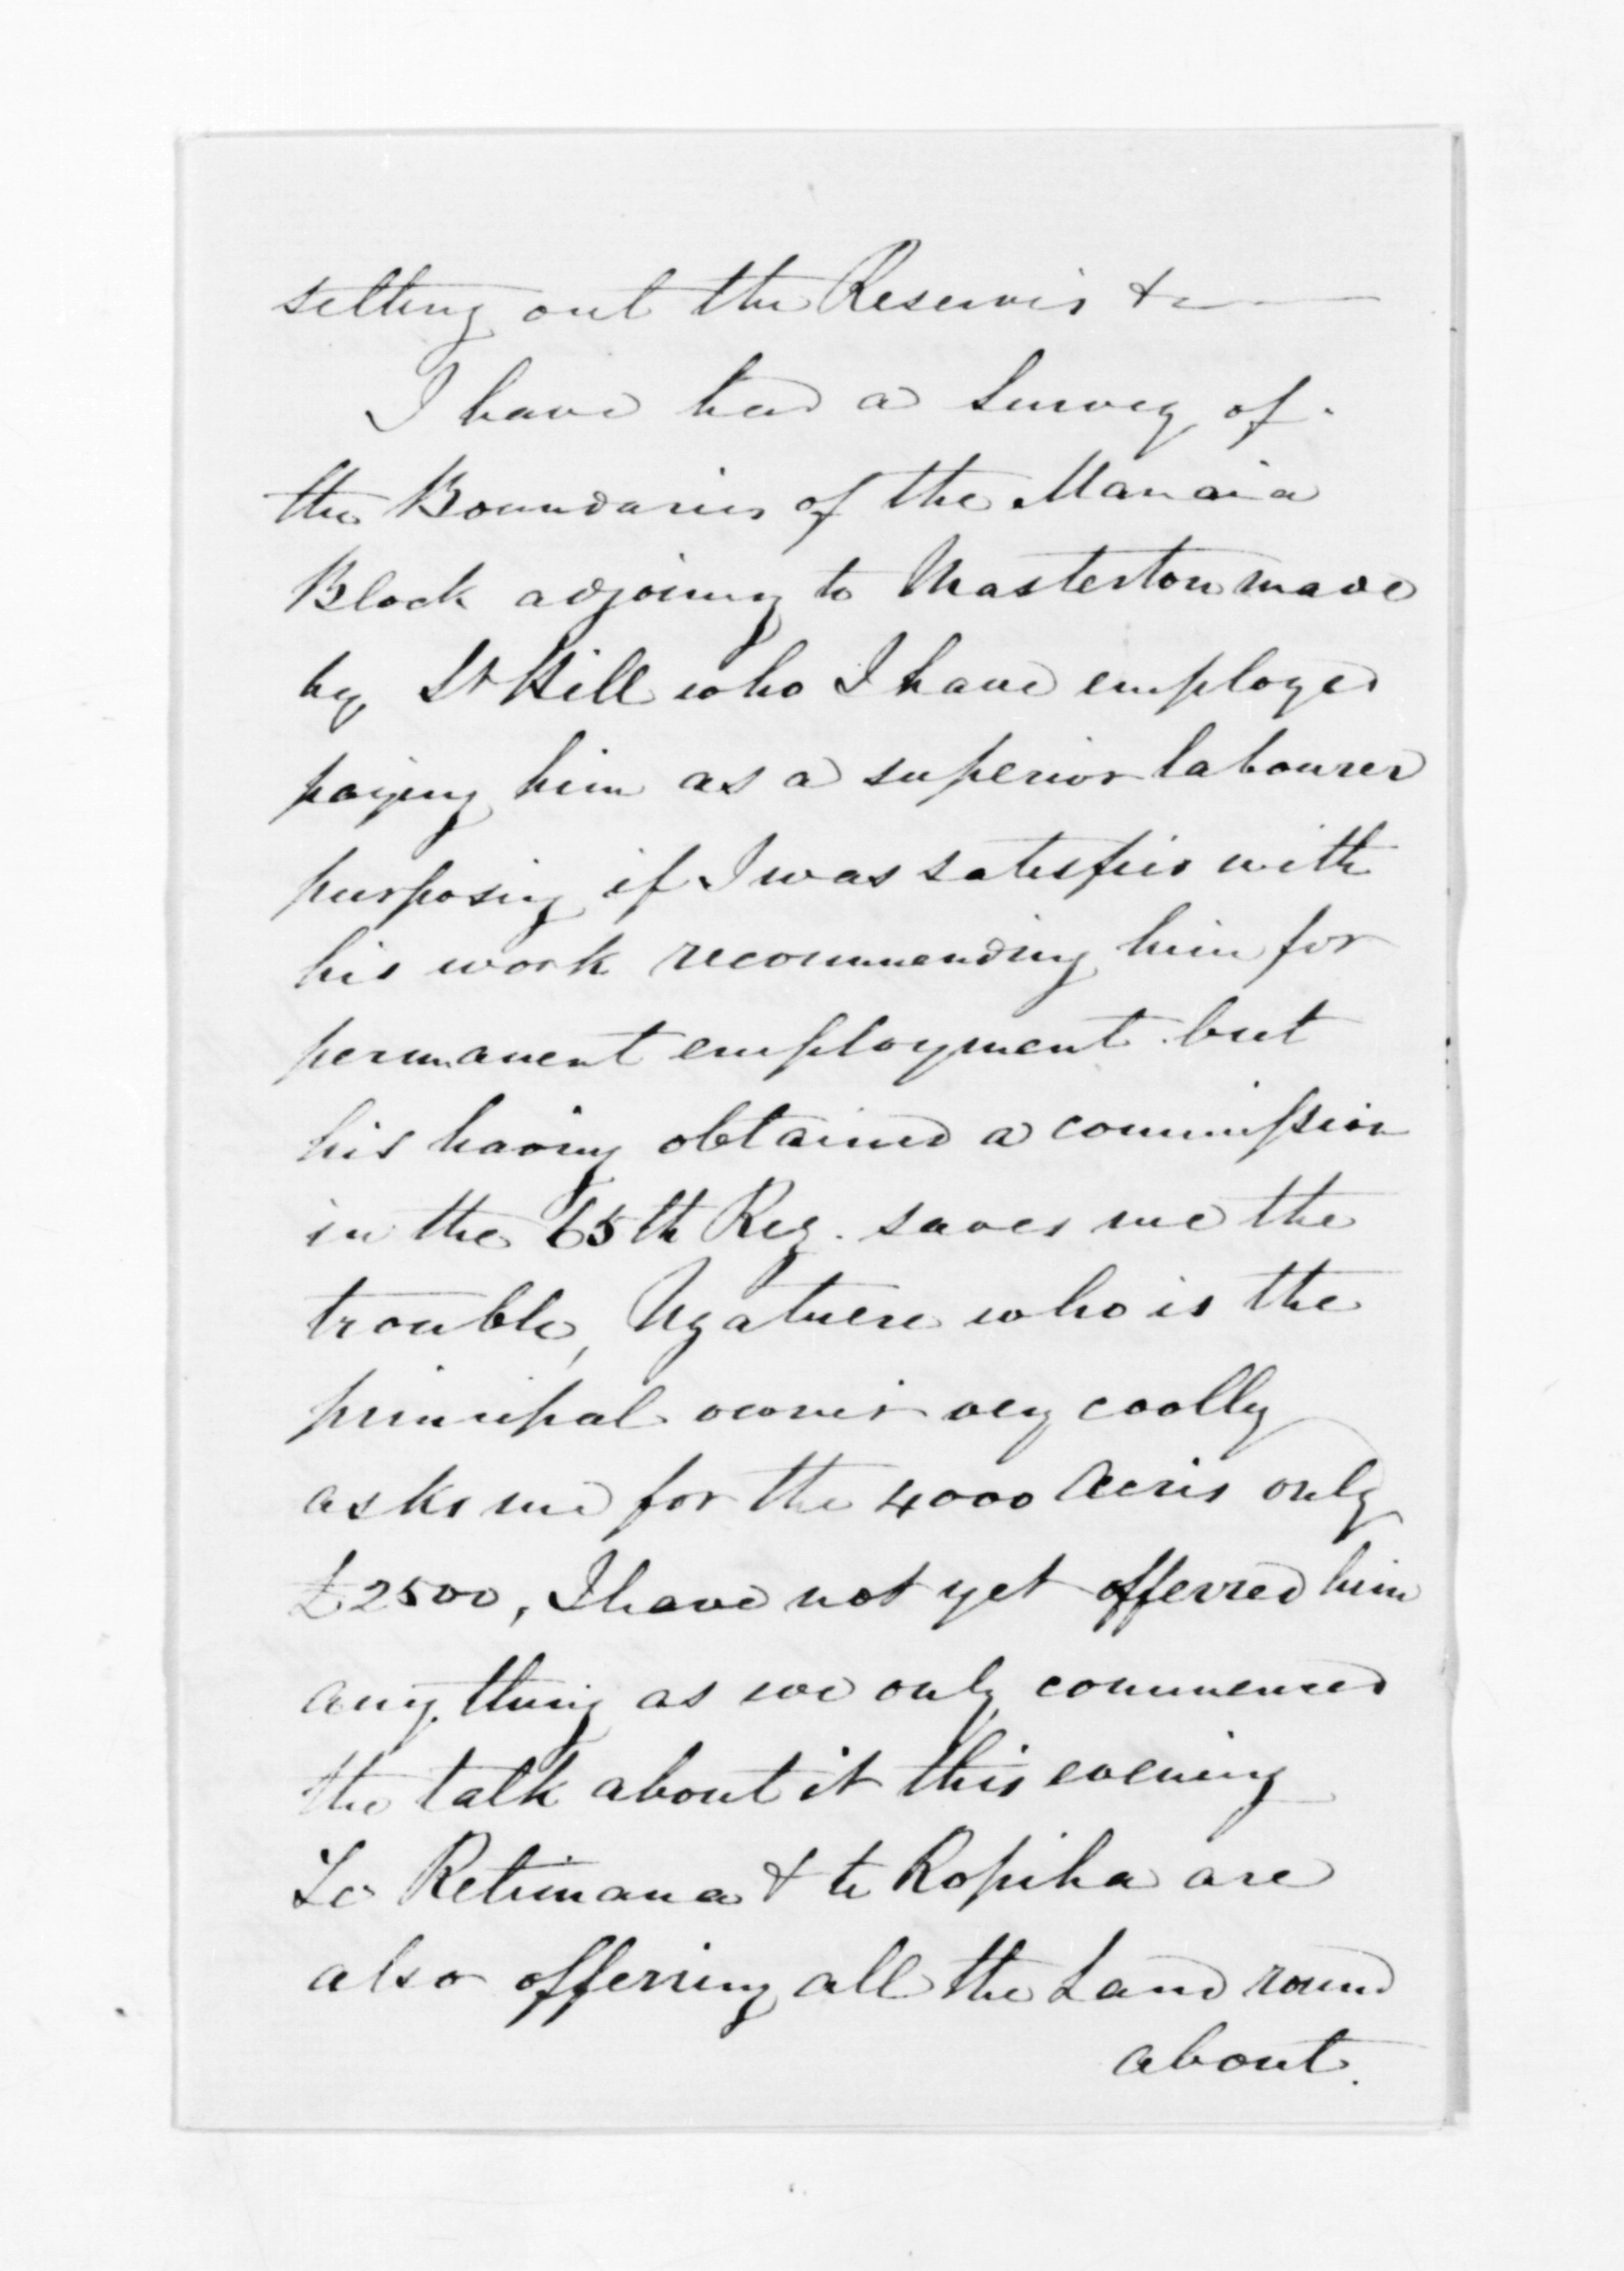 setting out the Reserves &c
I have had a Survey of
the Boundaries of the Manaia
Block adjoining to Masterton made
by St Hill who I have employed
paying him as a superior labourer
purposing if I was satisfied with
his work recommending him for
permanent employment but
his having obtained a commission
in the 65th Reg. saves me the
trouble, Ngatuere who is the
principal owner very coolly
asks me for the 4000 Acres only
£2500, I have not yet offerred him
any thing as we only commenced
the talk about it this evening
Te Retimana & te Ropiha are
also offerring all the Land round
about.